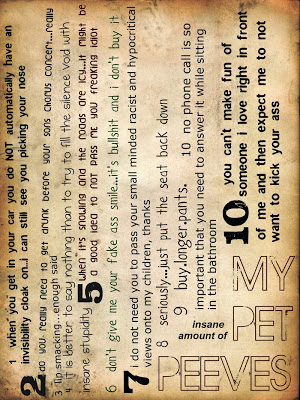 1 when you get in your car you do NOT automatically have an
invisibility cloak on..i can still see you picking your nose
2 do you really need to get drunk before your sons chorus concert...really
3 lip smacking...enough said
4 it is better to say nothing than to try to fill the silence void with
insane stupidity
5 when it's snowing and the roads are icy...it might be
a good idea to not pass me you freaking idiot
6 don't give me your fake ass smile...it's bullshit and i don't buy it
7 i do not need you to pass your small minded racist and hypocritical
views onto my children, thanks
8 seriously...just put the seat back down
9 buy.longer.pants. 10 no phone call is so
important that you need to answer it while sitting
in the bathroom
10 you can't make fun of
someone i love right in front
of me and then expect me to not
want to kick your ass
insane
amount of
MY
PET
PEEVES